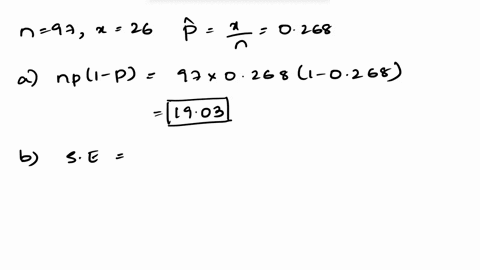 n=97, x = 26 P̂ = x/n = 0.268
a) np(1-P) = 97 × 0.268 (1-0.268)
= 19.03
b) S.E =